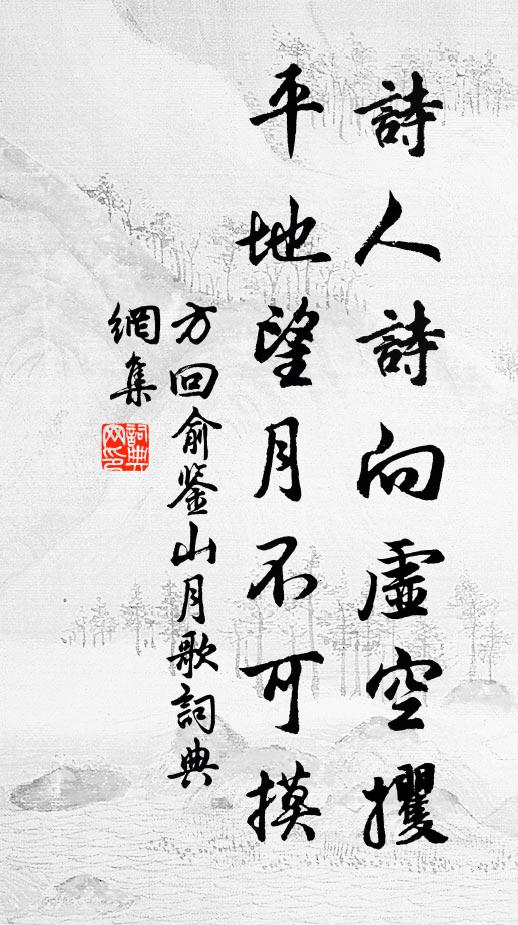 詩人詩向虛空攫
平地望月不可摸
方回俞鉴山月歌詞典
網集
詞典
网印